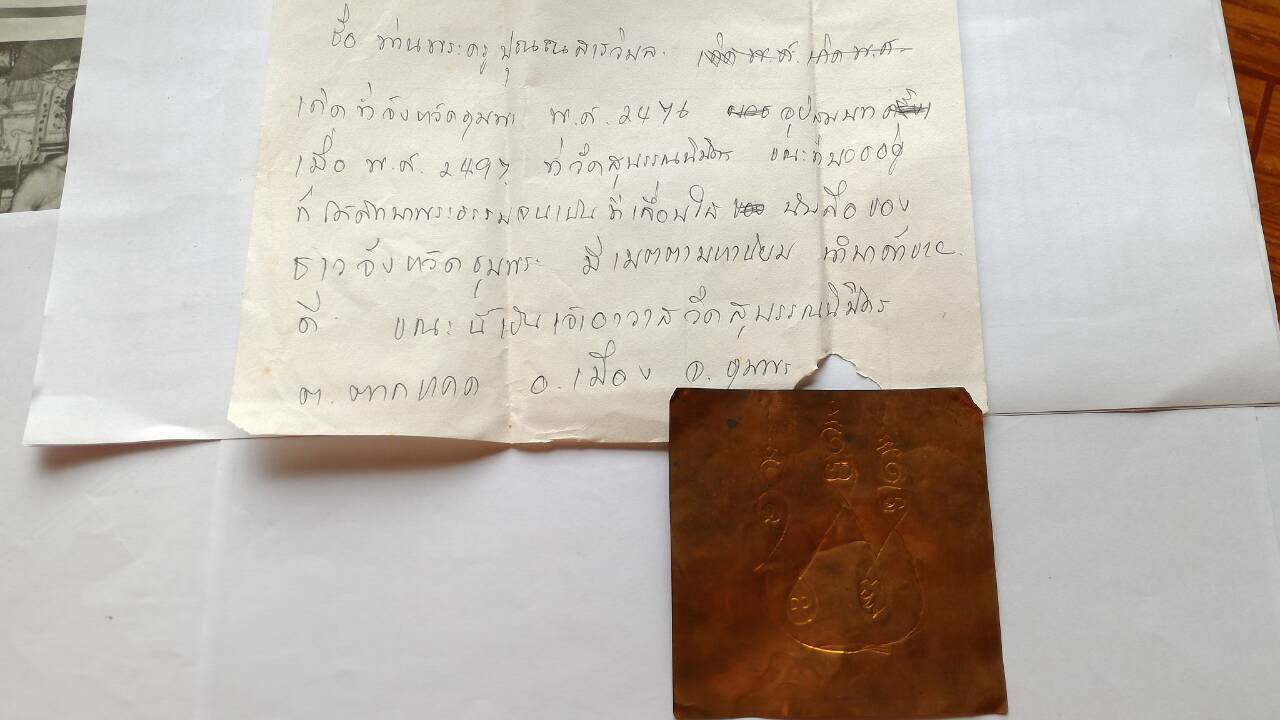 ชื่อ ท่านพระครู ปุณณสารวิมล
เกิดที่จังหวัดชุมพร พ.ศ. 2476 อุปสมบท
เมื่อ พ.ศ. 2497 ที่วัดสุบรรณนิมิตร ขณะที่บวชอยู่
ก็ได้ศึกษาพระธรรมจนเป็นที่เลื่อมใส นับถือของ
ชาวจังหวัดชุมพร มีเมตตามหานิยม
ดี ขณะนี้เป็นเจ้าอาวาสวัดสุบรรณนิมิตร
ต. ตากแดด อ. เมือง จ. ชุมพร